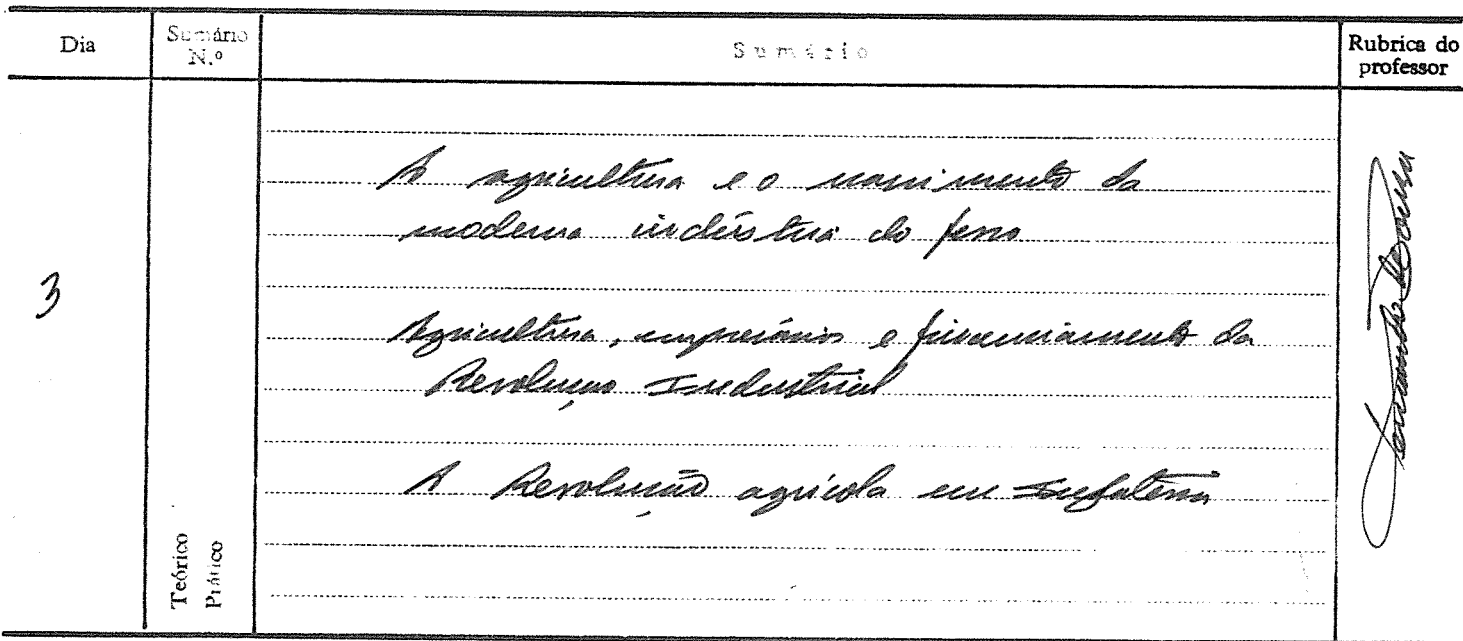 Dia
Sumário N.º
Sumário
Rubrica do professor
3
A agricultura e o nascimento da
moderna indústria do ferro
Agricultura, empresários e financiamento da
Revolução Industrial
A Revolução agrícola em Inglaterra
Teórico
Prático